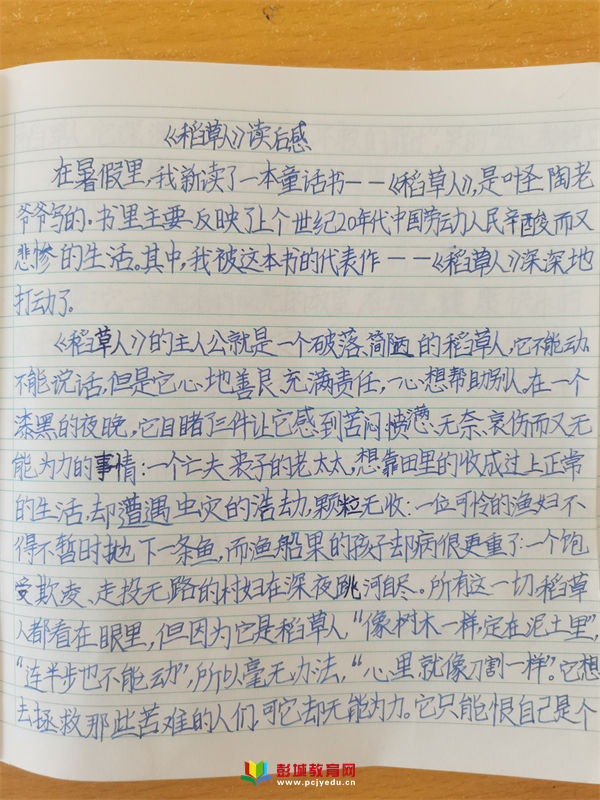 《稻草人》读后感
在暑假里,我新读了一本童话书——《稻草人》,是叶圣陶老
爷爷写的。书里主要反映了上个世纪20年代中国劳动人民辛酸而又
悲惨的生活。其中,我被这本书的代表作——《稻草人》深深地
打动了。
《稻草人》的主人公就是一个破落、简陋的稻草人,它不能动、
不能说话,但是它心地善良、充满责任,一心想帮助别人。在一个
漆黑的夜晚,它目睹了三件让它感到苦闷、愤懑、无奈、哀伤而又无
能为力的事情:一个亡夫丧子的老太太,想靠田里的收成过上正常
的生活,却遭遇虫灾的浩劫,颗粒无收;一位可怜的渔妇不
得不暂时抛下一条鱼,而渔船里的孩子却病很更重了;一个饱
受欺凌、走投无路的村妇在深夜跳河自尽。所有这一切稻草
人都看在眼里,但因为它是稻草人“像树木一样,定在泥土里”,
“连半步也不能动”,所以毫无办法,“心里就像刀割一样”。它想
去拯救那些苦难的人们,可它却无能为力。它只能恨自己是个
彭城教育网
www.pcjyedu.cn